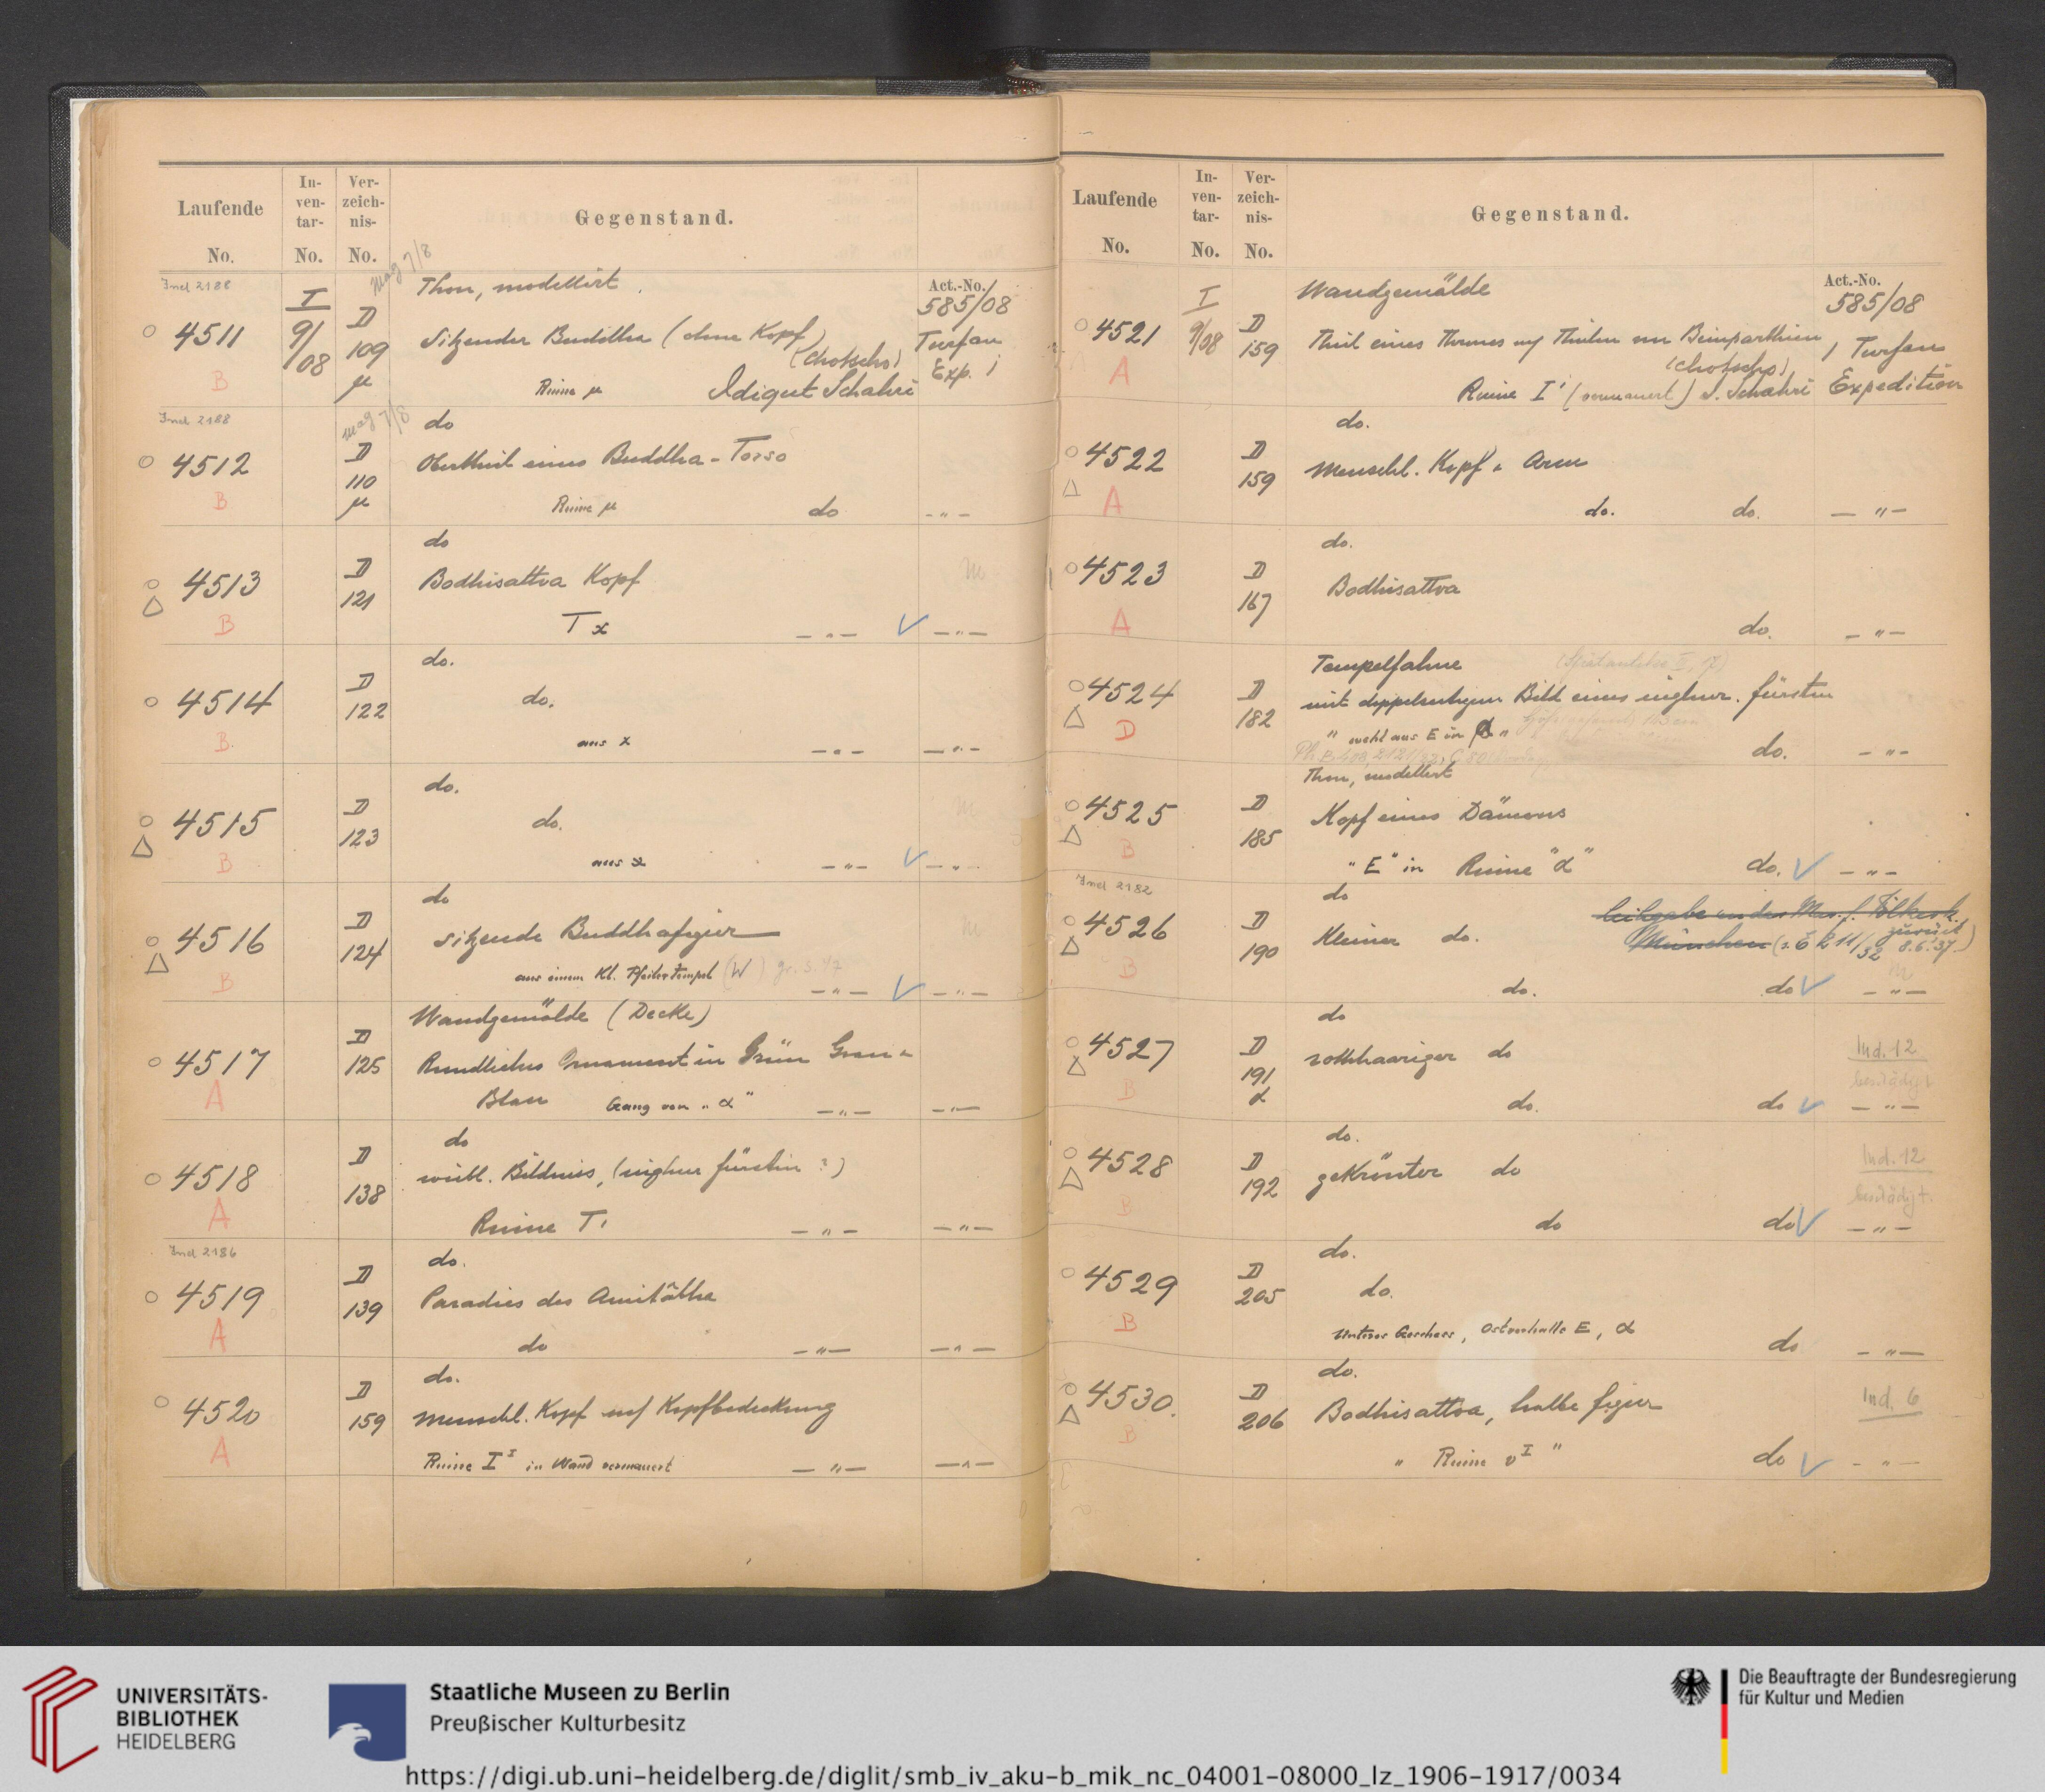 Laufende No.
In-ven-tar- No.
Ver-zeich-nis- No.
Gegenstand.
Ind 2188
mag 7/8
Thon, modellirt.
Act.-No.
585/08
4511
I
9/08
D
109
µ
Sitzender Buddha (ohne Kopf)
(Chotscho)
Turfan
Exp. I
B
Ruine µ Idigut Schahri
Ind 2188
mag 7/8
do
4512
D
110
µ
Obertheil eines Buddha-Torso
B
Ruine µ do — " —
do
4513
D
121
Bodhisattva Kopf
m
B
T x — " — — " —
do.
4514
D
122
do.
B.
aus x — " — — " —
do.
4515
D
123
do.
m
B
aus x — " — — " —
do
4516
D
124
sitzende Buddhafigur
m
B
aus einem kl. Pfeilertempel (W) gr. S. 47
— " — — " —
Wandgemälde (Decke)
4517
D
125
Rundliches Ornament in Grün Grau u
A
Blau Gang von "α" — " — — " —
do
4518
D
138
weibl. Bildniss, (uighur fürstin ?)
A
Ruine T' — " — — " —
Ind 2186
do.
4519
D
139
Paradies des Amitâbha
A
do — " — — " —
do.
4520
D
159
menschl. Kopf mit Kopfbedeckung
A
Ruine I' in Wand vermauert — " — — " —
Laufende No.
In-ven-tar- No.
Ver-zeich-nis- No.
Gegenstand.
Wandgemälde
Act.-No.
585/08
4521
I
9/08
D
159
Theil eines Thrones mit Theilen von Beinparthien
(Chotscho)
I Turfan
Expedition
A
Ruine I' (vermauert) I. Schahri
do.
4522
D
159
menschl. Kopf u Arm
A
do. do. — " —
do.
4523
D
167
Bodhisattva
A
do. — " —
Tempelfahne (Spätantike III, 17)
4524
D
182
mit doppelseitigem Bild eines uighur. fürsten
D
" wohl aus E in α "
do. — " —
Thon, modellirt
4525
D
185
Kopf eines Dämons
B
"E" in Ruine "α" do. — " —
Ind 2182
do
Leihgabe an das Mus. f. Völkerk.
4526
D
190
Kleiner do.
München (s. E 211/32 zurück 8.6.37)
m
B
do. do — " —
do
4527
D
191
α
rothhaariger do
Ind. 12
beschädigt
B
do. do — " —
do.
4528
D
192
gekrönter do
Ind. 12
beschädigt.
B
do do — " —
do.
4529
D
205
do.
B
Unteres Geschoss, Ostvorhalle E, α do — " —
do.
4530.
D
206
Bodhisattva, halbe figur
Ind. 6
B
" Ruine v I " do — " —
UNIVERSITÄTS-
BIBLIOTHEK
HEIDELBERG
Staatliche Museen zu Berlin
Preußischer Kulturbesitz
Die Beauftragte der Bundesregierung
für Kultur und Medien
https://digi.ub.uni-heidelberg.de/diglit/smb_iv_aku-b_mik_nc_04001-08000_lz_1906-1917/0034